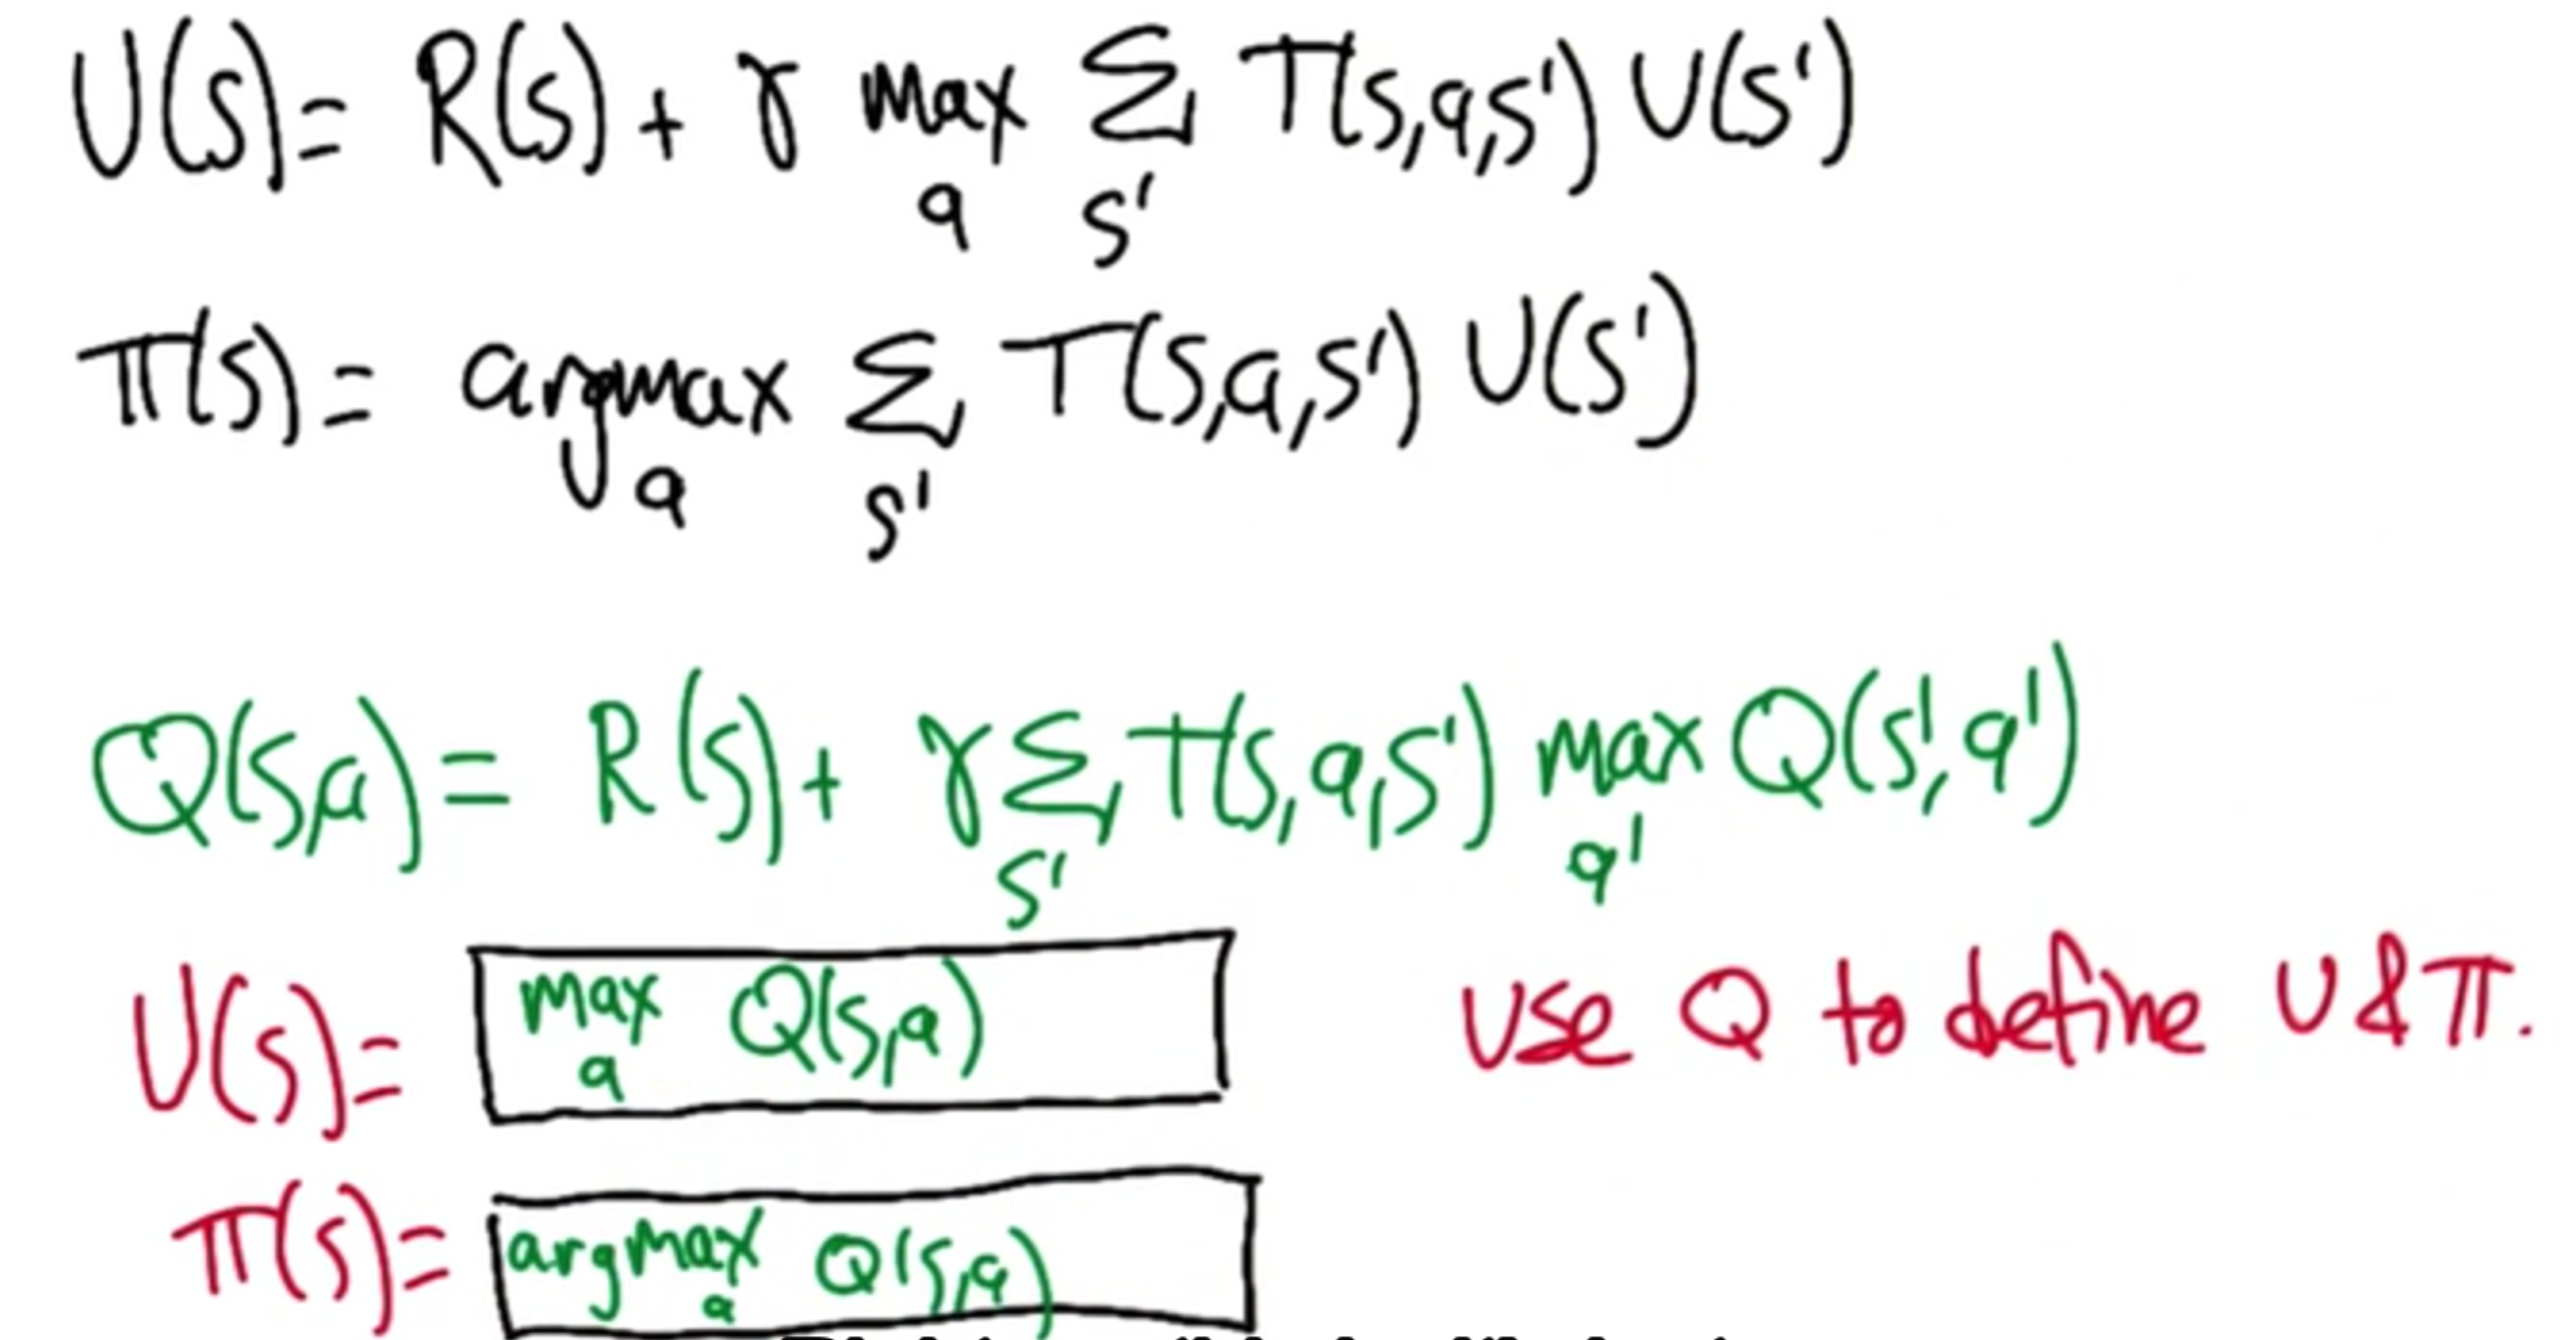 U(s) = R(s) + γ max_a Σ_s' T(s,a,s') U(s')
π(s) = argmax_a Σ_s' T(s,a,s') U(s')
Q(s,a) = R(s) + γ Σ_s' T(s,a,s') max_a' Q(s',a')
U(s) = max_a Q(s,a) use Q to define U & π.
π(s) = argmax_a Q(s,a)